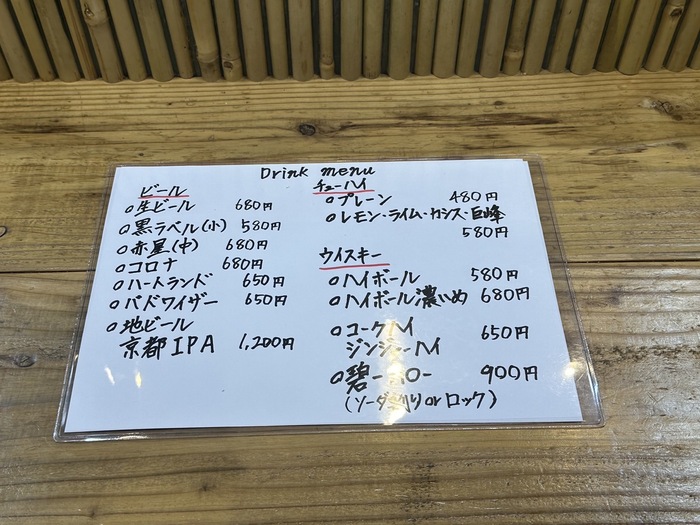 Drink menu
ビール
○生ビール 680円
○黒ラベル(小) 580円
○赤星(中) 680円
○コロナ 680円
○ハートランド 650円
○バドワイザー 650円
○地ビール
京都IPA 1,200円
チューハイ
○プレーン 480円
○レモン・ライム・カシス・巨峰
580円
ウイスキー
○ハイボール 580円
○ハイボール濃いめ 680円
○コークハイ 650円
ジンジャーハイ
○碧 900円
(ソーダ割り or ロック)